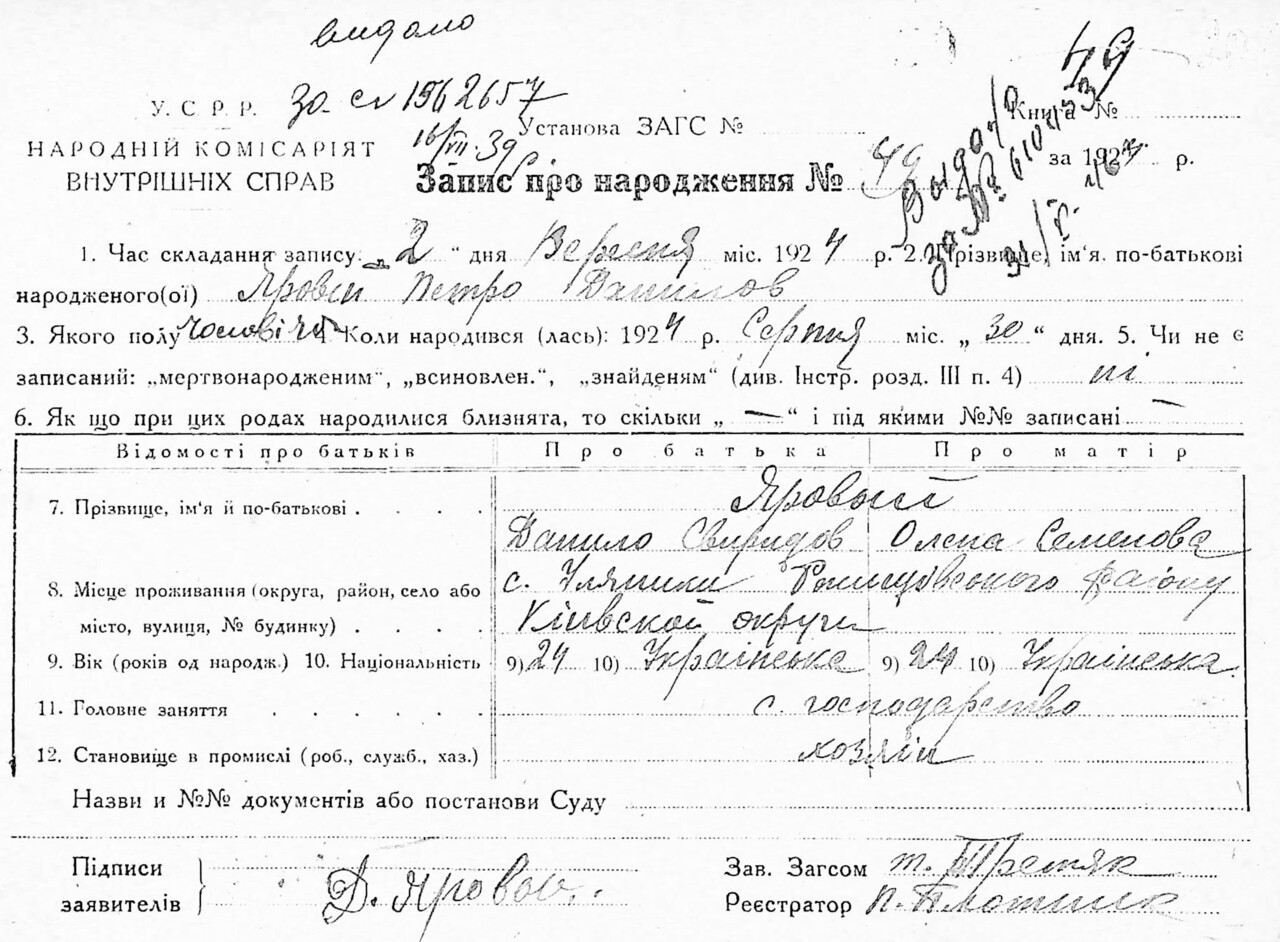 видано
У. С. Р. Р. за сл 1562657
16/VII. 39
НАРОДНІЙ КОМІСАРІЯТ
ВНУТРІШНІХ СПРАВ
Установа ЗАГС №
Книга №
49
за 1924 р.
Запис про народження № 49
1. Час складання запису: „2“ дня Вересня міс. 1924 р. 2. Прізвище, ім'я по-батькові
народженого(ої) Яровий Петро Данилов
3. Якого полу чоловіч. 4 Коли народився (лась): 1924 р. Серпня міс. „30“ дня. 5. Чи не є
записаний: „мертвонародженим“, „всиновлен.“, „знайденям“ (див. Інстр. розд. III п. 4) ні
6. Як що при цих родах народилися близнята, то скільки „ — “ і під якими №№ записані —
Відомості про батьків Про батька Про матір
7. Прізвище, ім'я й по-батькові . . . . Яровый
Данило Свиридов Олена Семенова
8. Місце проживання (округа, район, село або с. Уляники Району
місто, вулиця, № будинку) . . . . Київской округи
9. Вік (років од народж.) 10. Національність 9) 24 10) Українська 9) 24 10) Українська.
11. Головне заняття . . . . . . с. господарство
12. Становище в промислі (роб., служб., хаз.) хозяїн
Назви и №№ документів або постанови Суду
Підписи
заявителів
Д. Яровой.
Зав. Загсом т. Третяк
Реєстратор П. Плотник